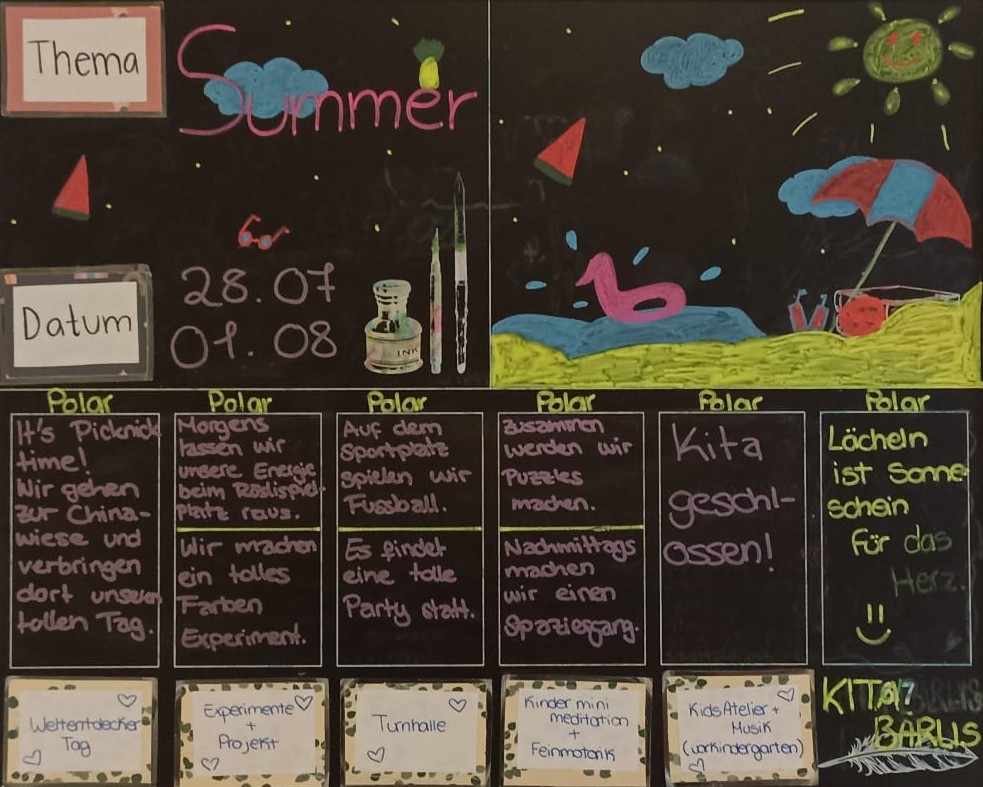 Thema
Summer
Datum
28.07
01.08
INK
Polar
It's Picknick
time!
Wir gehen
zur China-
wiese und
verbringen
dort unseren
tollen Tag.
Polar
Morgens
lassen wir
unsere Energie
beim Röslispiel-
Platz raus.
Wir machen
ein tolles
Farben
Experiment.
Polar
Auf dem
Sportplatz
spielen wir
Fussball.
Es findet
eine tolle
Party statt.
Polar
Zusammen
werden wir
Puzzles
machen.
Nachmittags
machen
wir einen
Spaziergang.
Polar
Kita
geschl-
ossen!
Polar
Lächeln
ist Sonne-
schein
für das
Herz.
Weltentdecker
Tag
Experimente
+
Projekt
Turnhalle
Kinder mini
meditation
+
Feinmotorik
Kids Atelier +
Musik
(vorkindergarten)
KITA
BÄRLIS